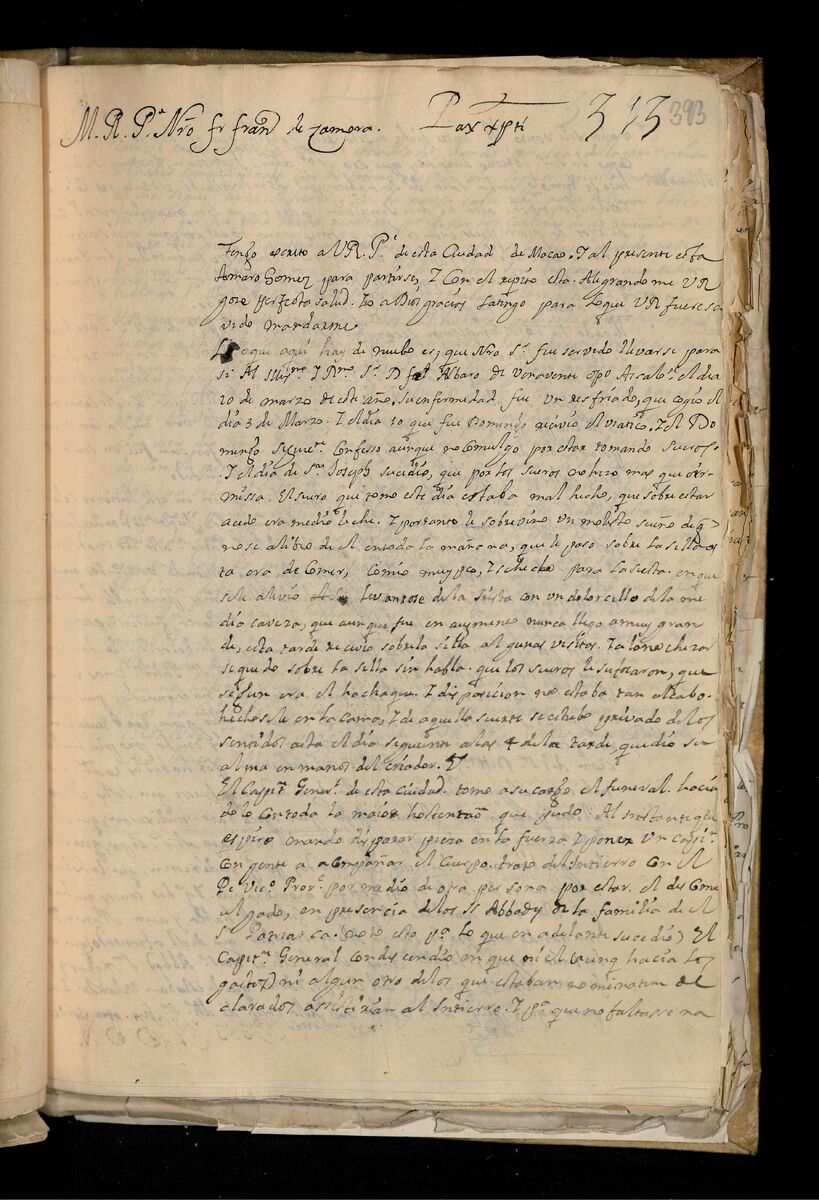 M. R. P.e Nro fr fran.co de zamora. Pax xpti 313 393
Tengo escrito a V R. P.e de esta Ciudad de Macao. Y al presente esta
Amaro Gomez para partirse, Y con el repito esta. Alegrandome V R
goze perfecta salud. Yo a Dios gracias la tengo para lo que V R fuere ser
vido mandarme
Lo que aqui hay de nuebo es, que Nro S.r fue servido llevarse para
si Al Illus.mo Y R.mo S.r D fr Albaro de Venavente opo Ascal.se el dia
20 de marzo de este año. Su enfermedad fue un resfriado, que cogio el
dia 3 de Marzo. Y el dia 10 que fue Domingo recivio el viatico. Y el Do
mingo siguie.te Confesso aunque no comulgo por estar tomando sueros.
Y el dia de S.n Joseph sucedio, que por los sueros no hizo mas que oir
missa. El suero que tomo este dia estaba mal hecho, que sobre estar
acedo era medio leche. Y por tanto le sobrevino un molesto sueño de q
no se a libro de el en toda la mañana, que le paso sobre la silla as
ta ora de Comer, Comio muy poco, Y se hecho para la siesta en que
se le alivio levantose de la siesta con un dolorcillo de la me
dia caveza, que aunque fue en aumento nunca llego a muy gran
de, esta tarde recivio sobre la silla algunas visitas. Y a la noche
se quedo sobre la silla sin habla. que los sueros le sufocaron, que
segun era el hachaque. Y disposicion no estaba tan al cabo.
hechosele en la cama, Y de aquella suerte se estubo privado de los
sentidos asta el dia siguiente a las 4 de la tarde, que dio su
alma en manos del criador.
El Capi.n Gener.l de esta Ciudad. tomo a su cargo el funeral. hacia
dole con toda la maior hostentac.on que pudo. Al instante que
espiro mando disparar pieza en la fuerza Y poner un Capi.n
Con gente a acompañar el Cuerpo. trato del Intierro Con el
Pe Vic.o Prov.l por medio de otra persona por estar el descomu
ulgado, en presencia de los SS Abbades de la familia de el
S.r Patriarca. (note esto p.a lo que en adelante sucedio) El
Capi.n General condescendio en que ni el (aunq hacia los
gastos) ni algun otro de los que estaban nominatim de
clarados assistirian al Intierro. Y p.a que no faltasse na